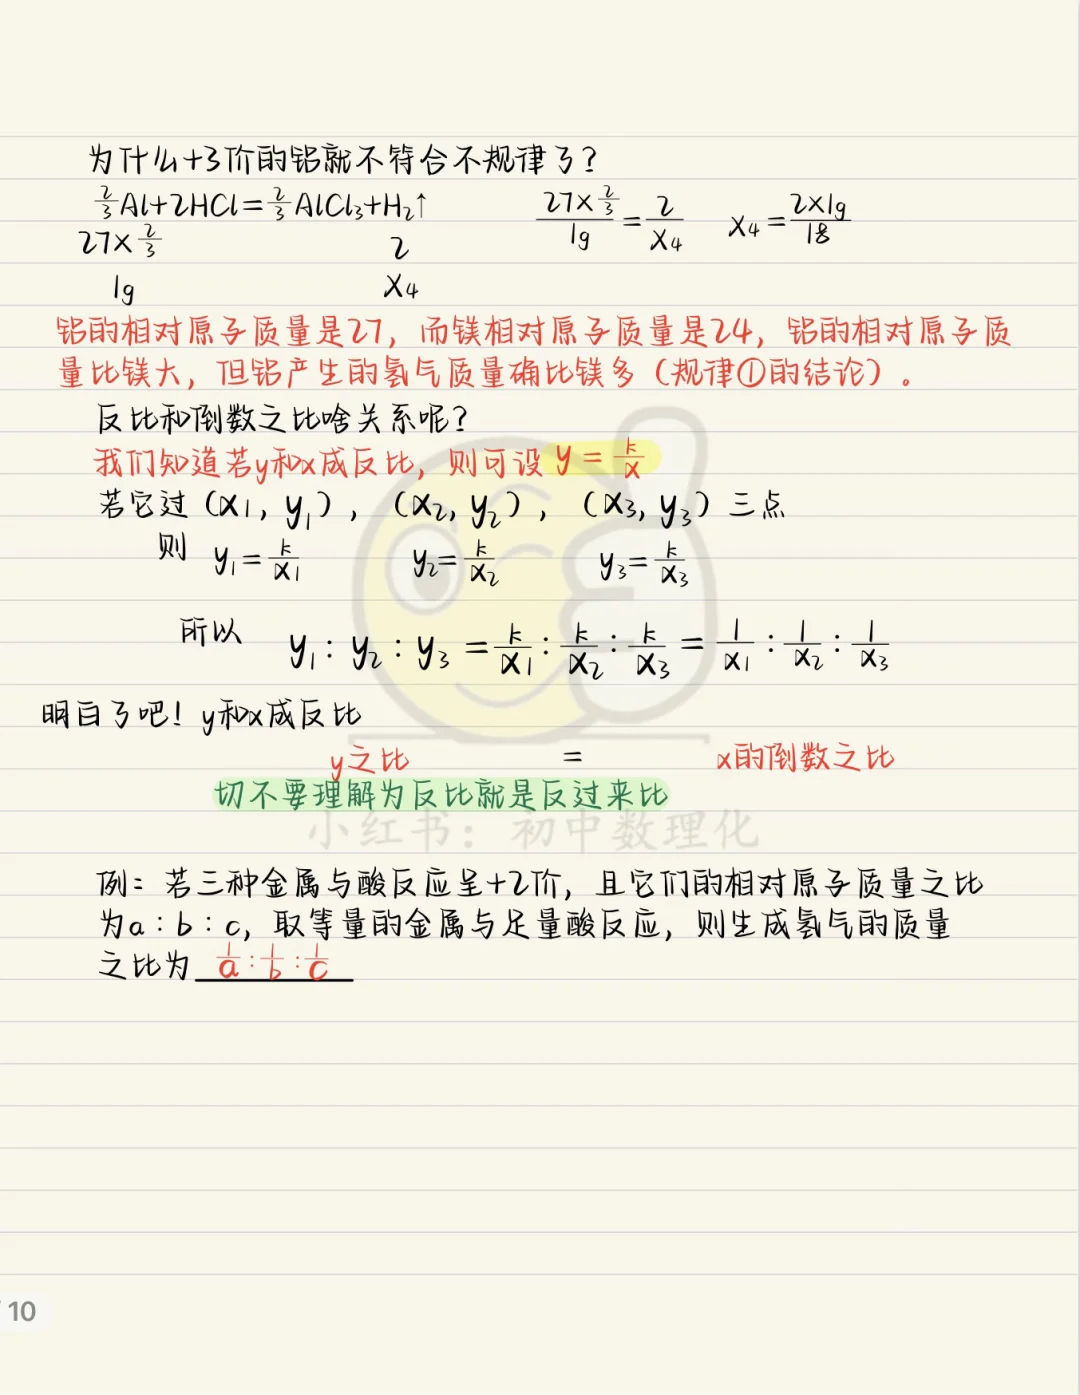 为什么+3价的铝就不符合不规律了？
2/3Al+2HCl=2/3AlCl₃+H₂↑ (27×2/3)/1g=2/X₄ X₄=(2×1g)/18
27×2/3 2
1g X₄
铝的相对原子质量是27，而镁相对原子质量是24，铝的相对原子质
量比镁大，但铝产生的氢气质量确比镁多（规律①的结论）。
反比和倒数之比啥关系呢？
我们知道若y和x成反比，则可设 y=k/x
若它过（X₁，y₁），（X₂，y₂），（X₃，y₃）三点
则 y₁=k/X₁ y₂=k/X₂ y₃=k/X₃
所以 y₁：y₂：y₃=k/X₁：k/X₂：k/X₃=1/X₁：1/X₂：1/X₃
明白了吧！y和x成反比
y之比 = x的倒数之比
切不要理解为反比就是反过来比
小红书：初中数理化
例：若三种金属与酸反应呈+2价，且它们的相对原子质量之比
为a：b：c，取等量的金属与足量酸反应，则生成氢气的质量
之比为 1/a：1/b：1/c
10